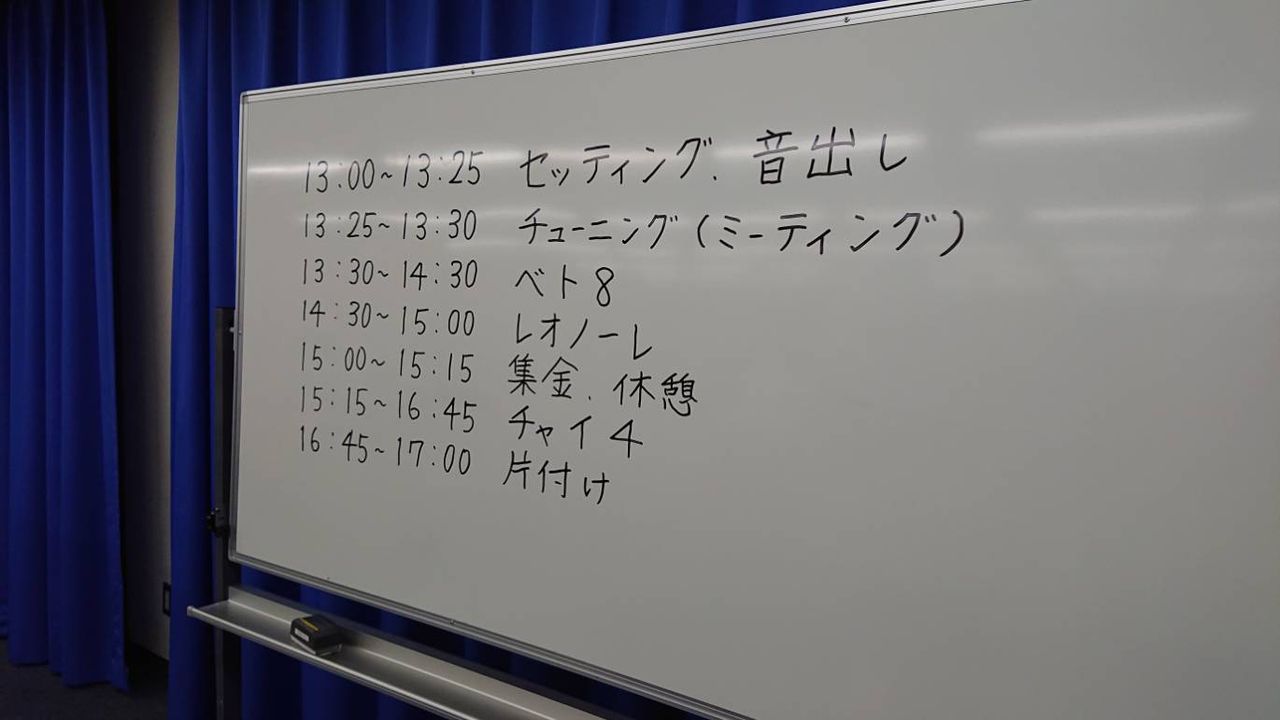 13:00~13:25 セッティング、音出し
13:25~13:30 チューニング(ミーティング)
13:30~14:30 ベト8
14:30~15:00 レオノーレ
15:00~15:15 集金、休憩
15:15~16:45 チャイ4
16:45~17:00 片付け